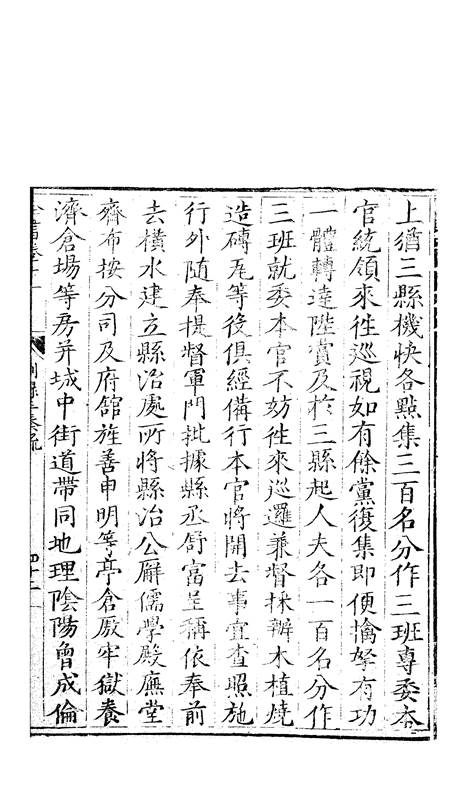 上猶三縣機快各點集三百名分作三班專委本
官統領來徃巡視如有餘黨復集即便擒拏有功
一體轉達陞賞及於三縣起人夫各一百名分作
三班就委本官不妨徃來巡邏兼督採辦木植燒
造磚瓦等役俱經備行本官將開去事宜查照施
行外隨奉提督軍門批據縣丞舒富呈稱依奉前
去橫水建立縣治處所將縣治公廨儒學殿廡堂
齋布按分司及府舘旌善申明等亭倉厫牢獄養
濟倉場等房并城中街道帶同地理隂陽曾成倫